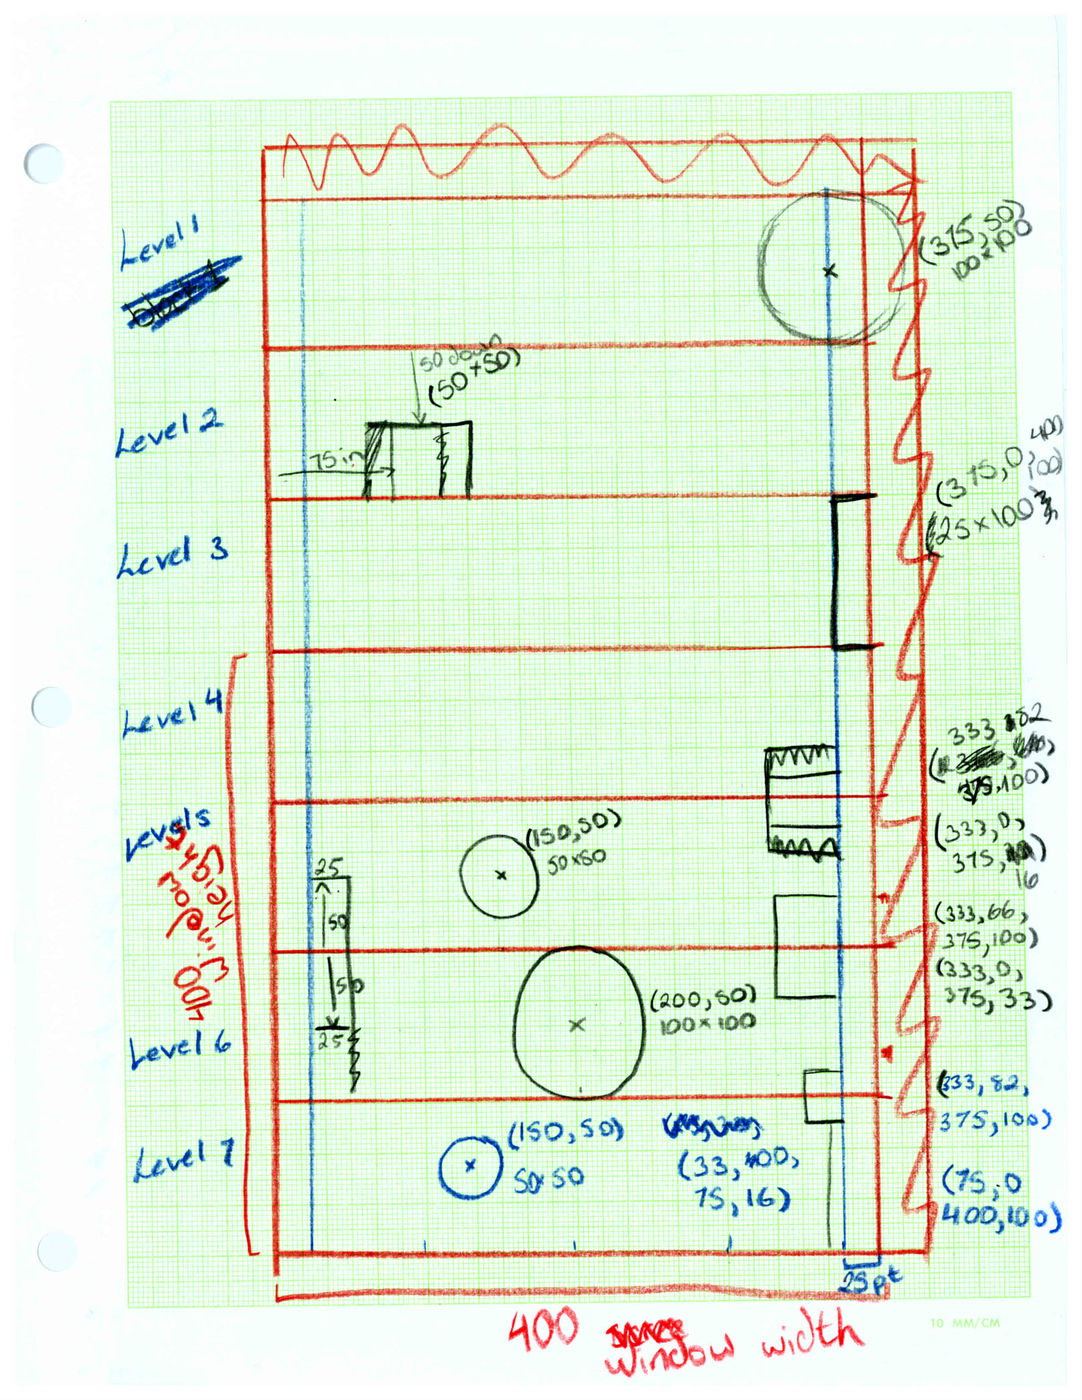 Level 1
(375, 50)
100x100
50 down
(50x50)
Level 2
75 in
(375, 0, 400
100)
25x100
Level 3
Level 4
333 82
375, 100)
Level 5
(150, 50)
50x50
(333, 0,
375,
16
25
50
50
25
(333, 66,
375, 100)
(333, 0,
375, 33)
(200, 50)
100x100
400
window
height
Level 6
(333, 82,
375, 100)
Level 7
(150, 50)
50x50
(33, 400,
75, 16)
(75, 0
400, 100)
25pt
400
window width
10 MM/CM